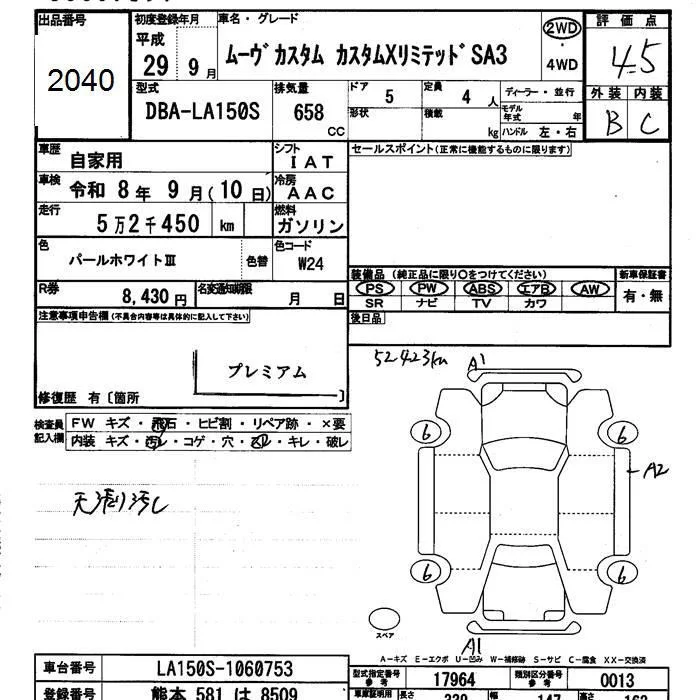 出品番号 初度登録年月 車名・グレード 評価点
2040
平成 29 9月 ムーヴカスタム カスタムXリミテッドSA3 2WD・4WD 4.5
型式 排気量 ドア 定員 ディーラー・並行 外装 内装
DBA-LA150S 658 CC 5 4人 モデル年式 年 B C
形状 積載 kg ハンドル 左・右
車歴 自家用 シフト IAT セールスポイント(正常に機能するものに限ります)
車検 令和 8年 9月(10日) 冷房 AAC
走行 5万2千450 km 燃料 ガソリン
色 パールホワイトⅢ 色替 色コード W24
装備品 (純正品に限り○をつけてください) 新車保証書
R券 8,430円 名変通知期限 月 日 PS PW ABS エアB AW 有・無
SR ナビ TV カワ
注意事項申告欄(不具合内容等は具体的に記入して下さい) 後日品
プレミアム
修復歴 有〔箇所 〕
52423km A1
検査員記入欄 FW キズ・飛石・ヒビ割・リペア跡・×要
内装 キズ・汚レ・コゲ・穴・スレ・キレ・破レ
6 6
A2
天張り汚レ
6 6
スペア
A1
A-キズ E-エクボ U-凹み W-補修跡 S-サビ C-腐食 XX-交換済
車台番号 LA150S-1060753
型式指定番号 参考 17964 類別区分番号 参考 0013
登録番号 熊本 581 は 8509
車庫証明用 長さ 339 幅 147 高さ